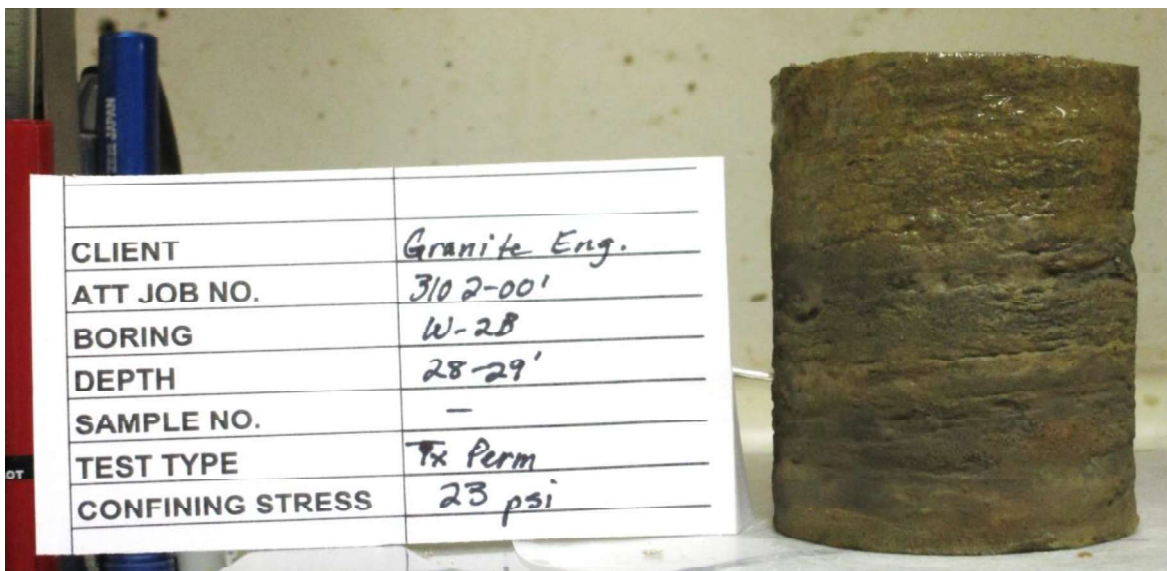 CLIENT Granite Eng.
ATT JOB NO. 3102-001
BORING W-2B
DEPTH 28-29'
SAMPLE NO. —
TEST TYPE Tx Perm
CONFINING STRESS 23 psi
JAPAN
OT